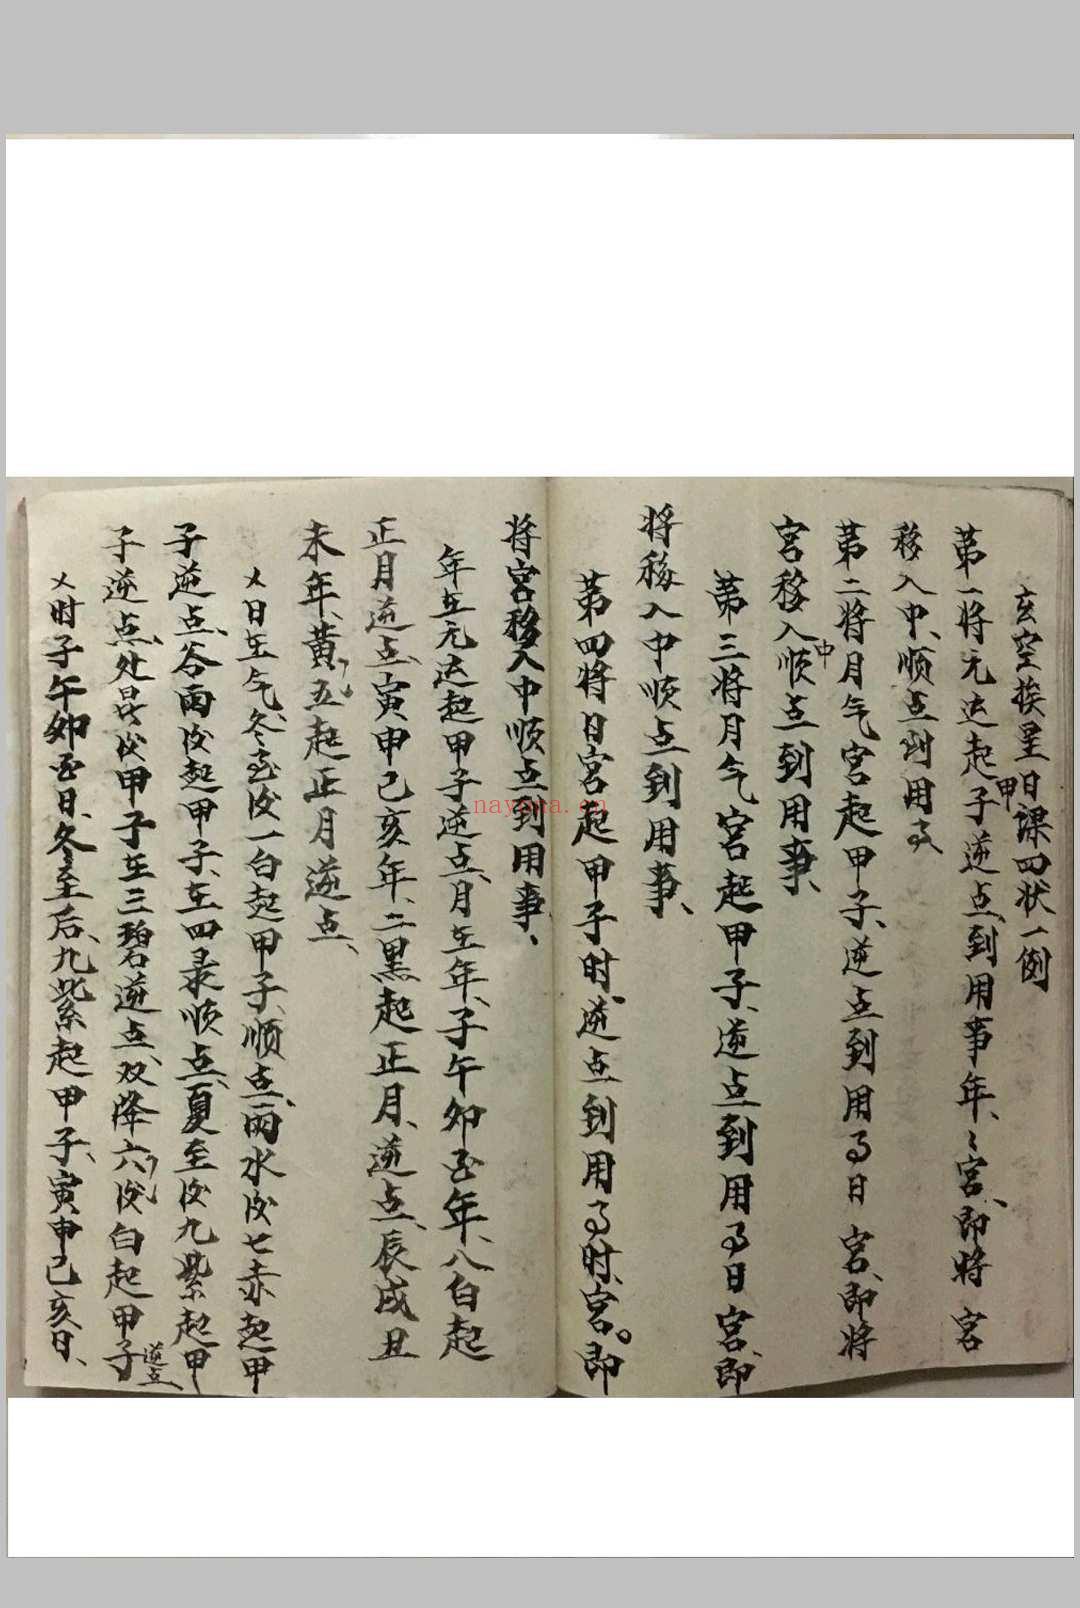 玄空挨星日课四状一例
第一将元运起甲子逆点、到用事年、〻宫、即将宫
移入中、顺点到用事
第二将月气宫起甲子、逆点到用事日宫、即将
宫移入中顺点到用事、
第三将月气宫起甲子、逆点到用事日宫、即
将移入中顺点到用事、
第四将日宫起甲子时、逆点到用事时、宫。即
将宫移入中顺点到用事、
年在元运起甲子逆点、月在年、子午卯酉年、八白起
正月逆点、寅申己亥年、二黑起正月、逆点、辰戌丑
未年、黄五起正月逆点、
又日在气、冬至后一白起甲子、顺点、雨水后七赤起甲
子逆点、谷雨后起甲子、在四录顺点、夏至后九紫起甲
子逆点、处暑后甲子在三碧逆点、双降六后白起甲子逆点、
又时子午卯酉日、冬至后、九紫起甲子、寅申己亥日、
nayona.cn